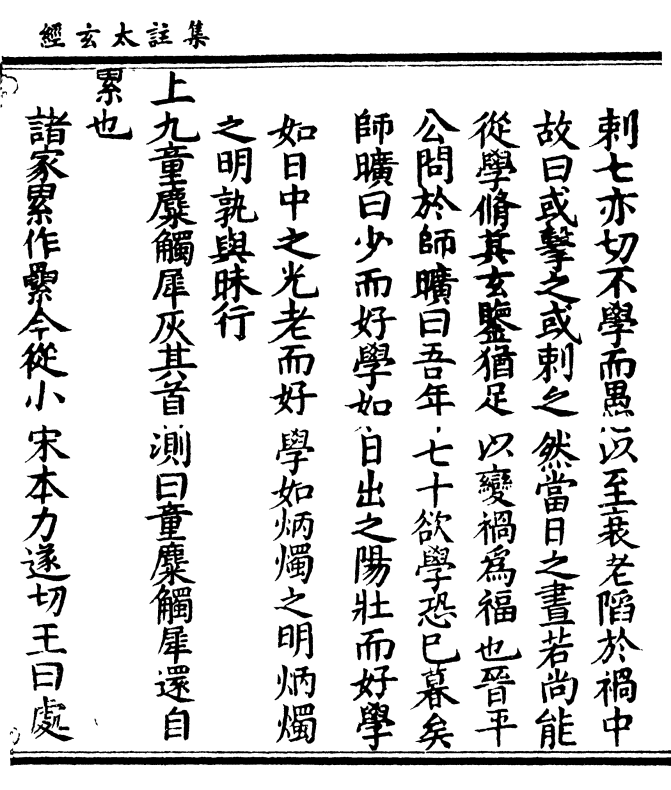 集註太玄經
刺七亦切不學而愚以至衰老陷於禍中
故曰或擊之或刺之然當日之晝若尚能
從學脩其玄鑒猶足以變禍爲福也晉平
公問於師曠曰吾年七十欲學恐已暮矣
師曠曰少而好學如日出之陽壯而好學
如日中之光老而好學如炳燭之明炳燭
之明孰與昧行
上九童麋觸犀灰其首測曰童麋觸犀還自
累也
諸家累作纍今從小宋本力遂切王曰處